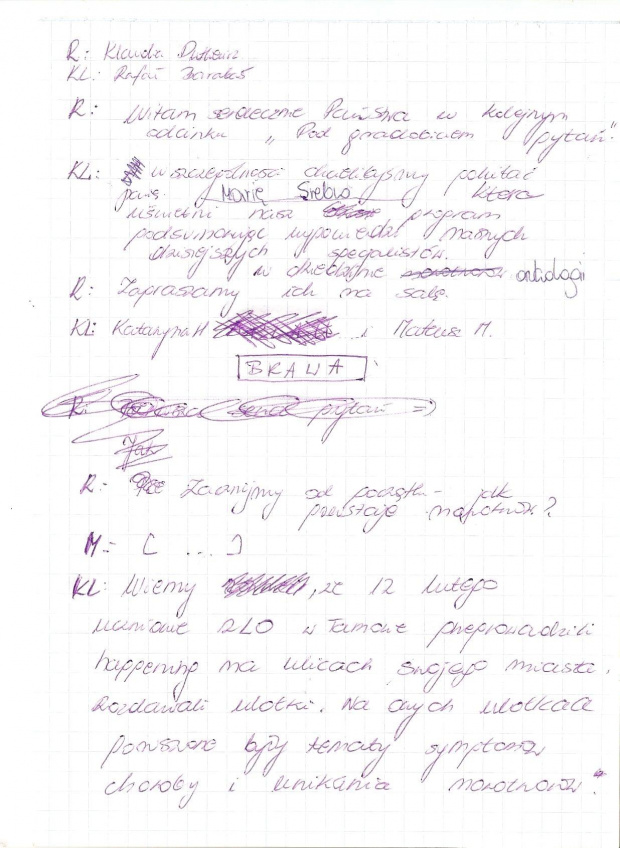 R: Klaudia
KL: Rafał Barabaś
R: Witam serdecznie Państwa w kolejnym
odcinku „Pod gradobiciem pytań".
KL: w szczególności chcielibyśmy powitać
panią Marię Srebro która
uświetni nasz program
podsumowując wypowiedzi naszych
dzisiejszych specjalistów.
w dziedzinie onkologii
R: Zapraszamy ich na salę.
KL: Katarzyna H i Mateusz M.
BRAWA
R: pytań =)
Jak
R: Zacznijmy od początku - jak
powstaje nowotwór?
M: [ ... ]
KL: Wiemy , że 12 lutego
uczniowie 2LO w Tarnowie przeprowadzili
happening na ulicach swojego miasta.
Rozdawali ulotki. Na owych ulotkach
poruszane były tematy symptomów
choroby i unikania nowotworów.